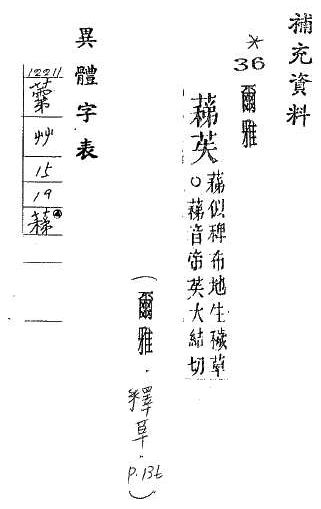 補充資料
*
36
爾雅
蕛苵
蕛似稗布地生穢草
○蕛音帝苵大結切
(爾雅．釋草．P.136)
異體字表
12211
艸
15
19
蕛④